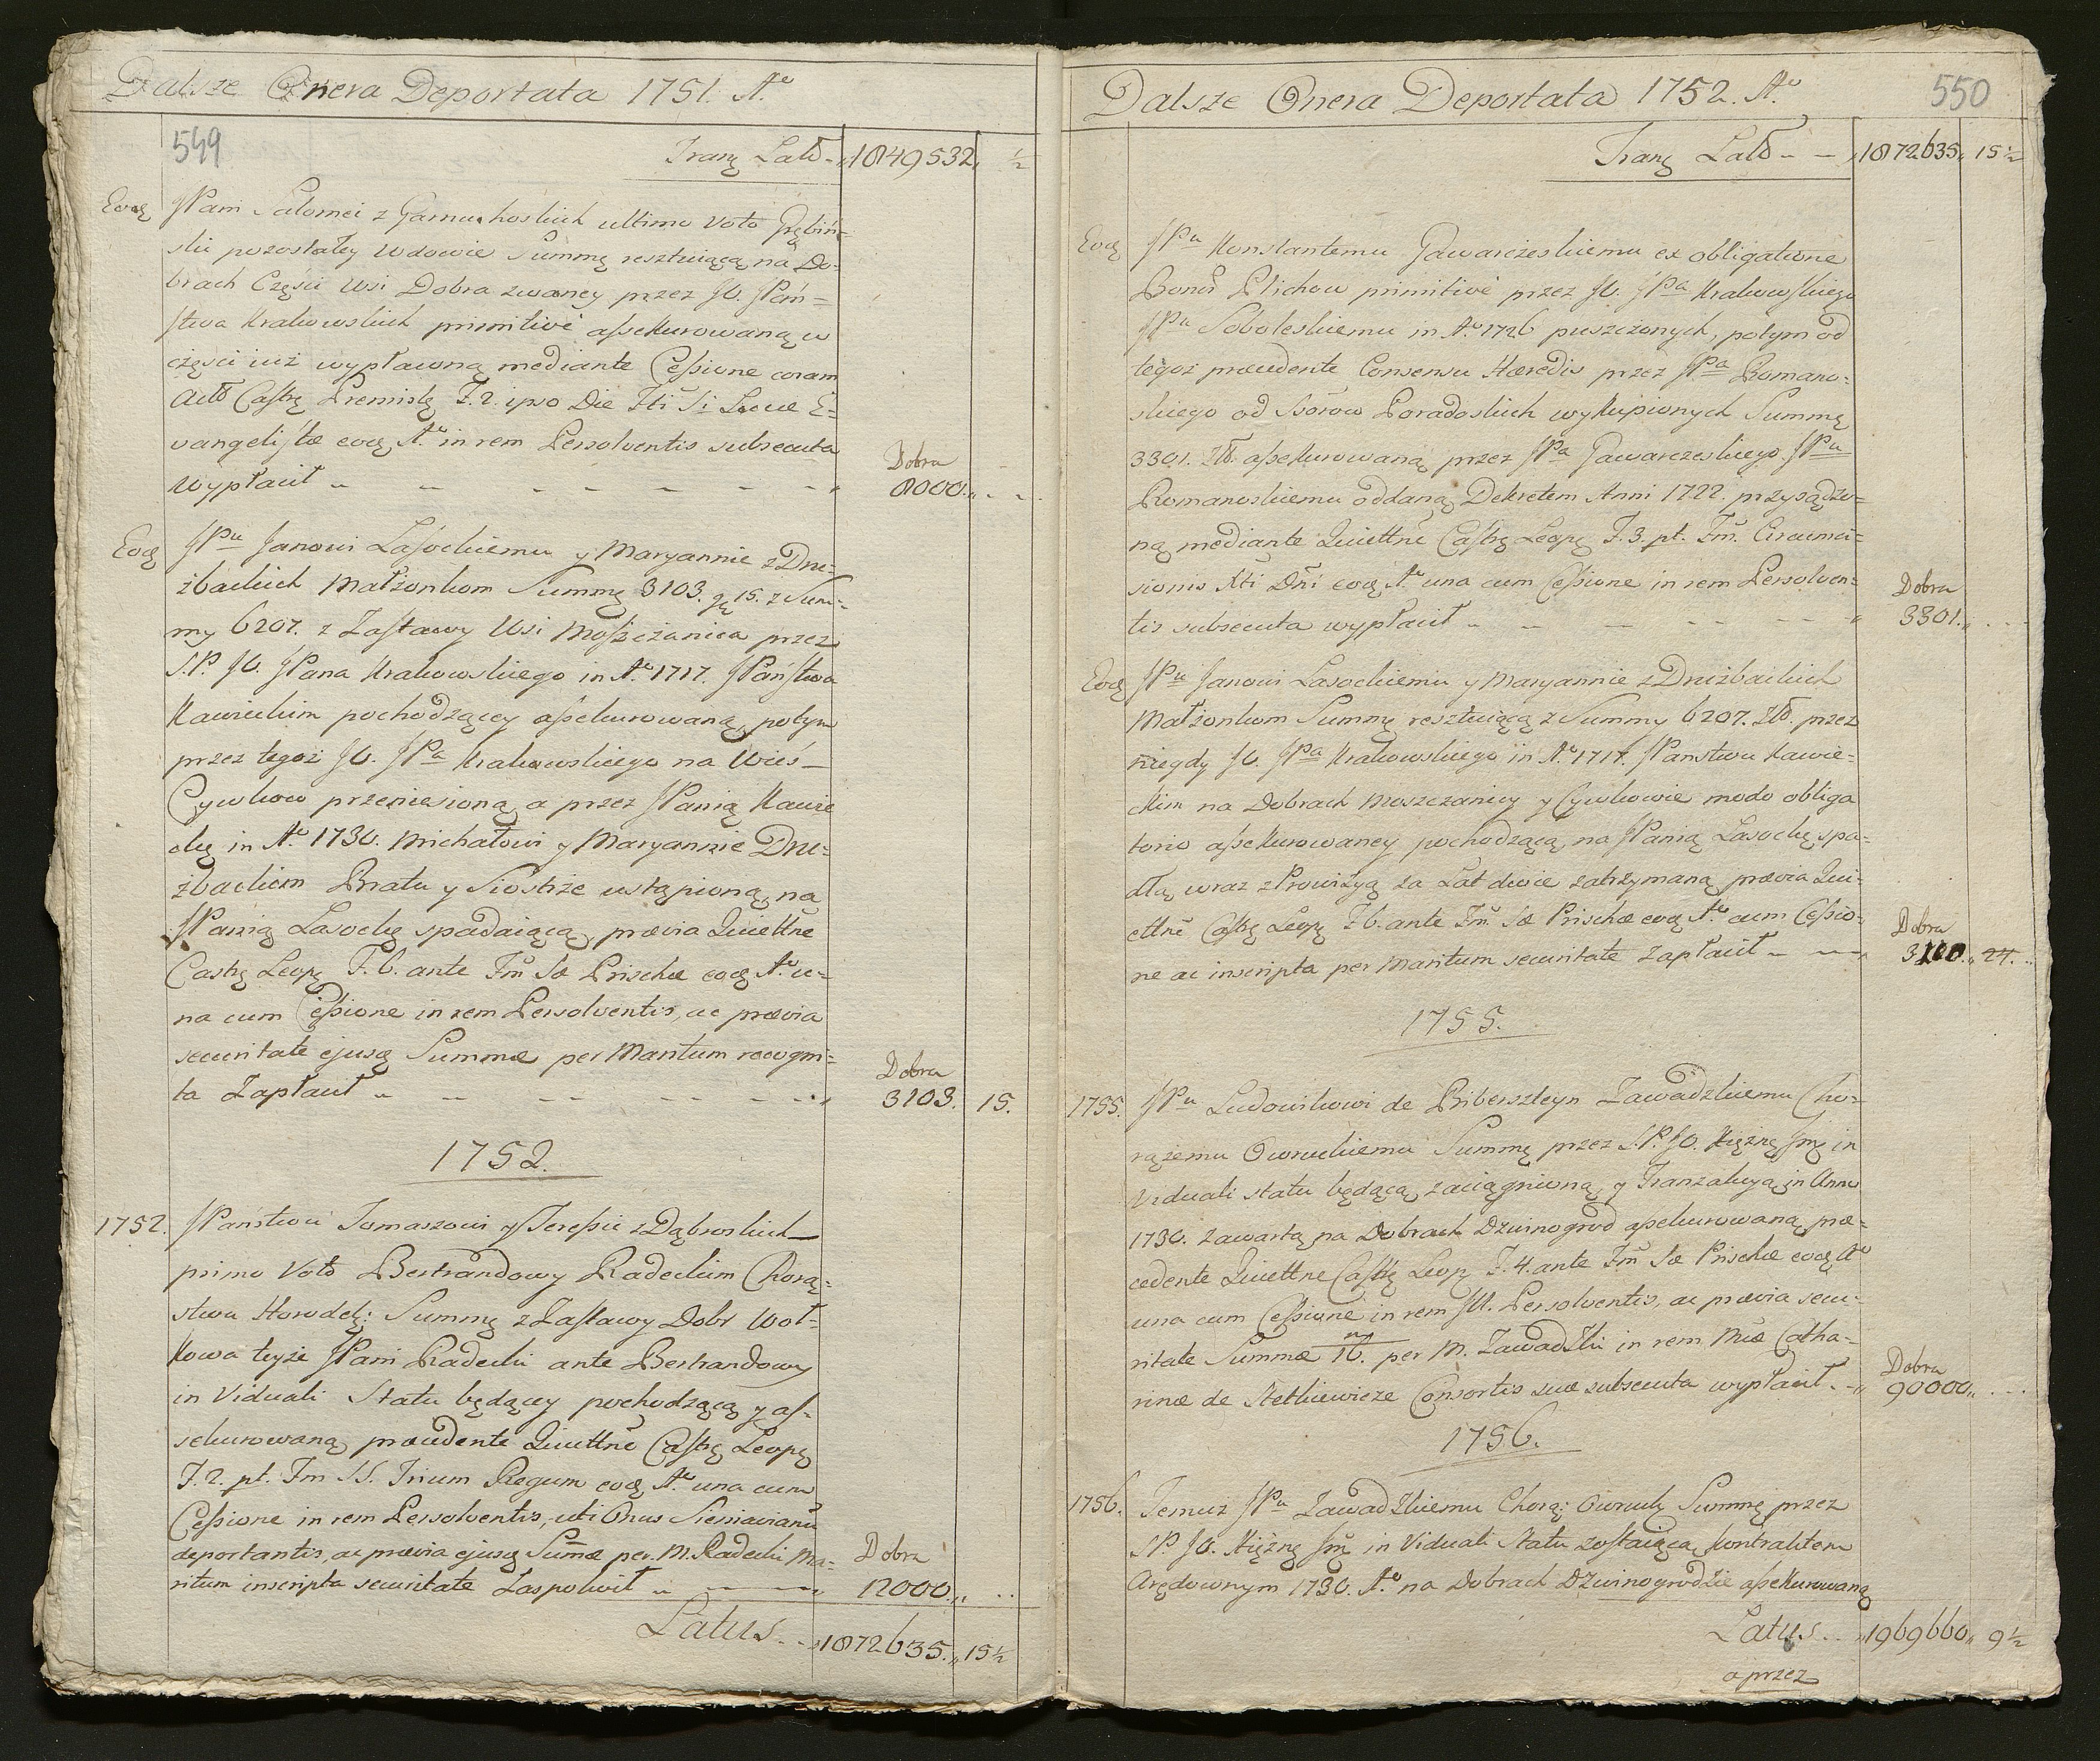 Dalsze Onera Deportata 1751. Aº
549
Tranz Latū - „1849532„ ½
Eodę JPani Salomei z Garnu hoskich ultimo voto Grębiń=
ski pozostałey Wdowie Summę resztuiącą na Do=
brach Części Wsi Dobra zwaney przez JO. JPań=
stwa Krakowskich primitivè assekurowaną w
części iuż wypłacową mediante Cessione coram
Actū Castrę Premislę F. 2. ipso Die Fti Si Lucæ E=
vangelistæ eodę Aº in rem Persolventis subsecuta
Wypłacił „ - - - - - „ Dobra 8000„ - -
Eodę JPu Janowi Lasockiemu y Maryannie z Dru=
żbackich Małżonkom Summę 3103. gę 15. z Sum=
my 6207. z Zastawy Wsi Moszczanica przez
S.P. JO. JPana Krakowskiego in Aº 1717. JPaństwa
Kawieckim pochodzącey assekurowaną, potym
przez tegoż JO. JPa Krakowskiego na Wieś
Cywkow przeniesioną a przez JPanią Kawie
cką in Aº 1730. Michałowi y Maryannie Dru=
żbackiem Bratu y Siostrze ustąpioną, na
JPanią Lasocką spadaiącą, prævia Quiettñe
Castrę Leopę F. 6. ante Fm̃ Sæ Priscæ eodę Aº u=
na cum Cessione in rem Persolventis, ac prævia
securitate ejusę Summæ per Maritum recogni=
ta Zapłacił „ - - - - „ Dobra 3103. 15.
1752.
1752. JPaństwu Tomaszowi y Teressie z Dąbroskich
primo Votō Bertrandowy Radeckim Chorą=
stwu Horodelę: Summę z Zastawy Dobr Woł=
kowa teyże JPani Radecki ante Bertrandowy
in Viduali Statu będącey pochodzącą y as=
sekurowaną præcedente Quiettñe Castrę Leopę
F. 2. pt. Fm SS. Trium Regum eodę Aº una cum
Cessione in rem Persolventis, uti Onus Sieniavianū
deportantis, ac prævia ejusę Sum̃æ per M. Radecki Ma=
ritum inscripta securitate Zaspokoił „ - - Dobra 12000„ ..
Latus - - „1872635.„ 15½
Dalsze Onera Deportata 1752. Aº
550
Tranz Latū - - „1872635„ 15½
Eodę JPu Konstantemu Gawarczeskiemu ex obligatione
Bonor̃ Plichow primitivè przez JO. JPa Krakowskiego
JPu Soboleskiemu in Aº 1726 puszczonych, potym od
tegoż præcedente Consensu Hæredis przez JPa Romano=
skiego od Ssórow Poradoskich wykupionych Summę
3301. Złł. assekurowaną przez JPa Gawarczeskiego JPu
Romanoskiemu oddaną Dekretem Anni 1722. przysądzo=
ną mediante Quiettñe Castrę Leopę F. 3. pt. Fm̃. Circumci=
sionis Xti Dñi eodę Aº una cum Cessione in rem Persolven=
tis subsecuta wypłacił „ - - - - „ Dobra 3301.„ . - -
Eodę JPu Janowi Lasockiemu y Maryannie z Drużbackich
Małżonkom Summę resztuiącą z Summy 6207. Złł. przez
niegdy JO. JPa Krakowskiego in Aº 1717. JPanstwu Kawie=
ckim na Dobrach Moszczanicy y Cywkowie modo obliga
torio assekurowaney pochodzącą, na JPanią Lasocką spa=
dłą, wraz z Prowizyą za Lat dwie zatrzymaną, prævia Qui=
ettñe Castrę Leopę F. 6. ante Fm̃ Sæ Priscæ eodę Aº cum Cessio=
ne ac inscripta per Maritum securitate Zapłacił „ - - Dobra 3100„ 24.
1755.
1755. JPu Ludowikowi de Biberszteyn Zawadzkiemu Cho=
rążemu Owruckiemu Summę przez S.P. JO. Xiężnę Jmę in
Viduali statu będącą zaciągnioną, y Tranzakcyą in Anno
1730. zawartą na Dobrach Dzwinogrod assekurowaną, præ=
cedente Quiettñe Castrę Leopę F. 4. ante Fm̃ Sæ Priscæ eodę Aº
una cum Cessione in rem JU. Persolventis, ac prævia secu=
ritate Summæ 16.m per M. Zawadzki in rem Mæ Catha=
rinæ de Stetkiewicze Consortis suæ subsecuta wypłacił. - „ Dobra 90000„ . - -
1756.
1756. Temuż JPu Zawadzkiemu Chorą: Owruckę Summę przez
S.P. JO. Xiężnę Jmę in Viduali Statu zostaiącą Kontraktem
Aręndownym 1730. Aº na Dobrach Dzwinogrodzie assekurowaną
Latus - - „1969660„ 9½
a przez